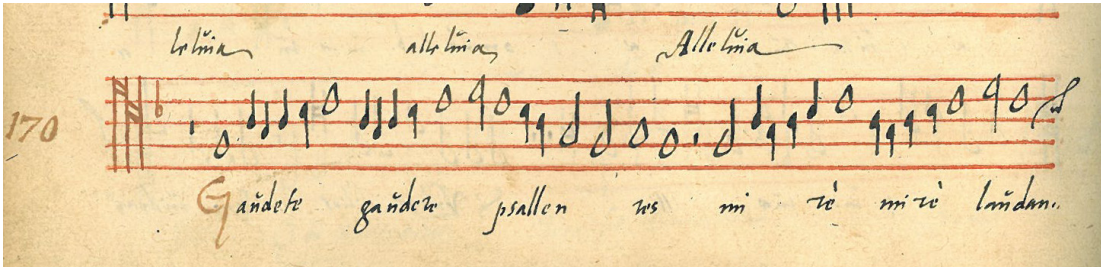 leluia alleluia Alleluia
170
Gaudete gaudete psallen tes mi rè mi rè laudan..